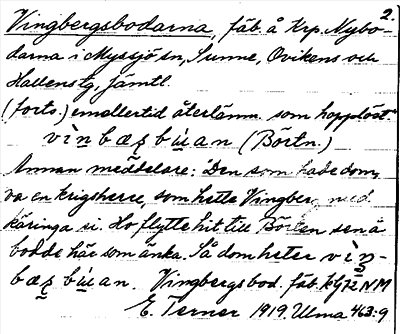 2.
Vingbergsbodarna, fäb. å Krp. Nybo-
darna i Myssjö sn, Sunne, Ovikens och
Hallens tg, Jämtl.
(forts.) emellertid återlämn. som hopplöst
vìnbæʒbùan (Börtn.)
Annan meddelare: "Den som hade dom,
va en krigsherre, som hette Vingberg, med
käringa si. Ho flytte hit till Börten sen å
bodde här som änka. Så dom heter vìn-
bæʒbùan. Vingbergsbod. fäb. kg 72 NM
E. Terner 1919. Ulma 463:9